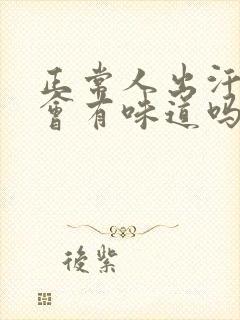 正常人出汗
會有味道吗
後紫